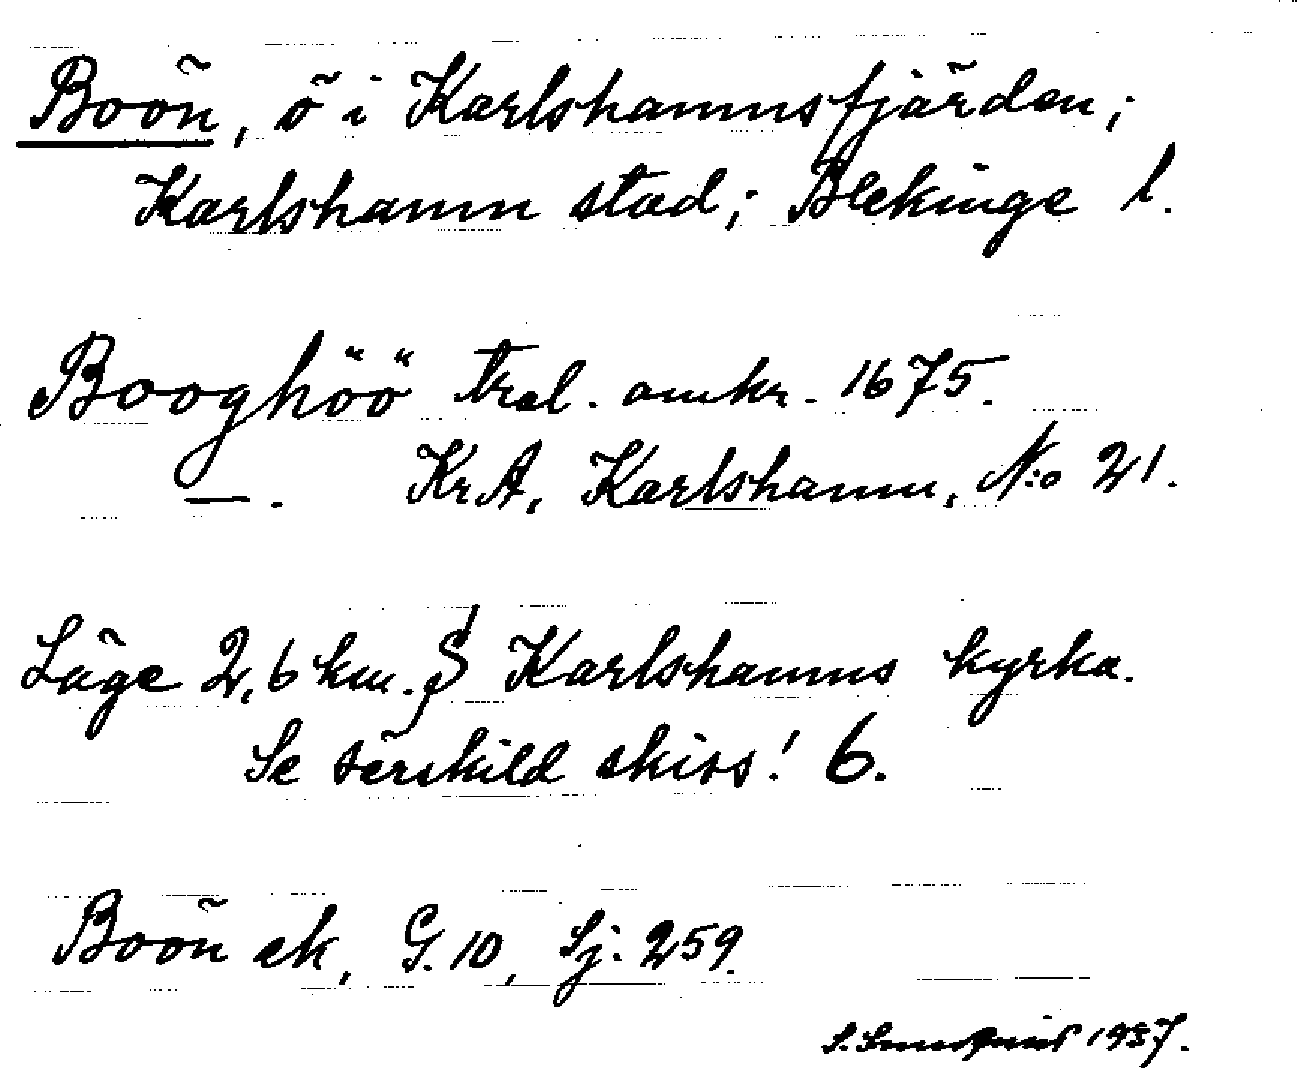 Boön, ö i Karlshamnsfjärden;
Karlshamn stad; Blekinge l.
Booghöö Tral. omkr. 1675.
—. KrA, Karlshamn, N:o 21.
Läge 2,6 km. S Karlshamns kyrka.
Se särskild skiss! 6.
Boön ek, G. 10, Sj: 259.
1937.